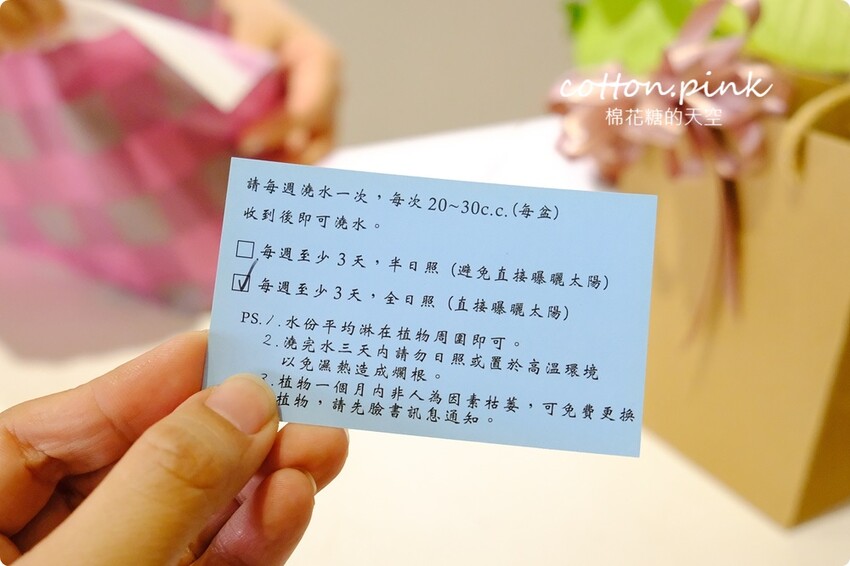 cotton.pink
棉花糖的天空
請每週澆水一次，每次20~30c.c.(每盆)
收到後即可澆水。
每週至少3天，半日照 (避免直接曝曬太陽)
每週至少3天，全日照 (直接曝曬太陽)
PS. 1.水份平均淋在植物周圍即可。
2.澆完水三天內請勿日照或置於高溫環境
以免濕熱造成爛根。
3.植物一個月內非人為因素枯萎，可免費更換
植物，請先臉書訊息通知。